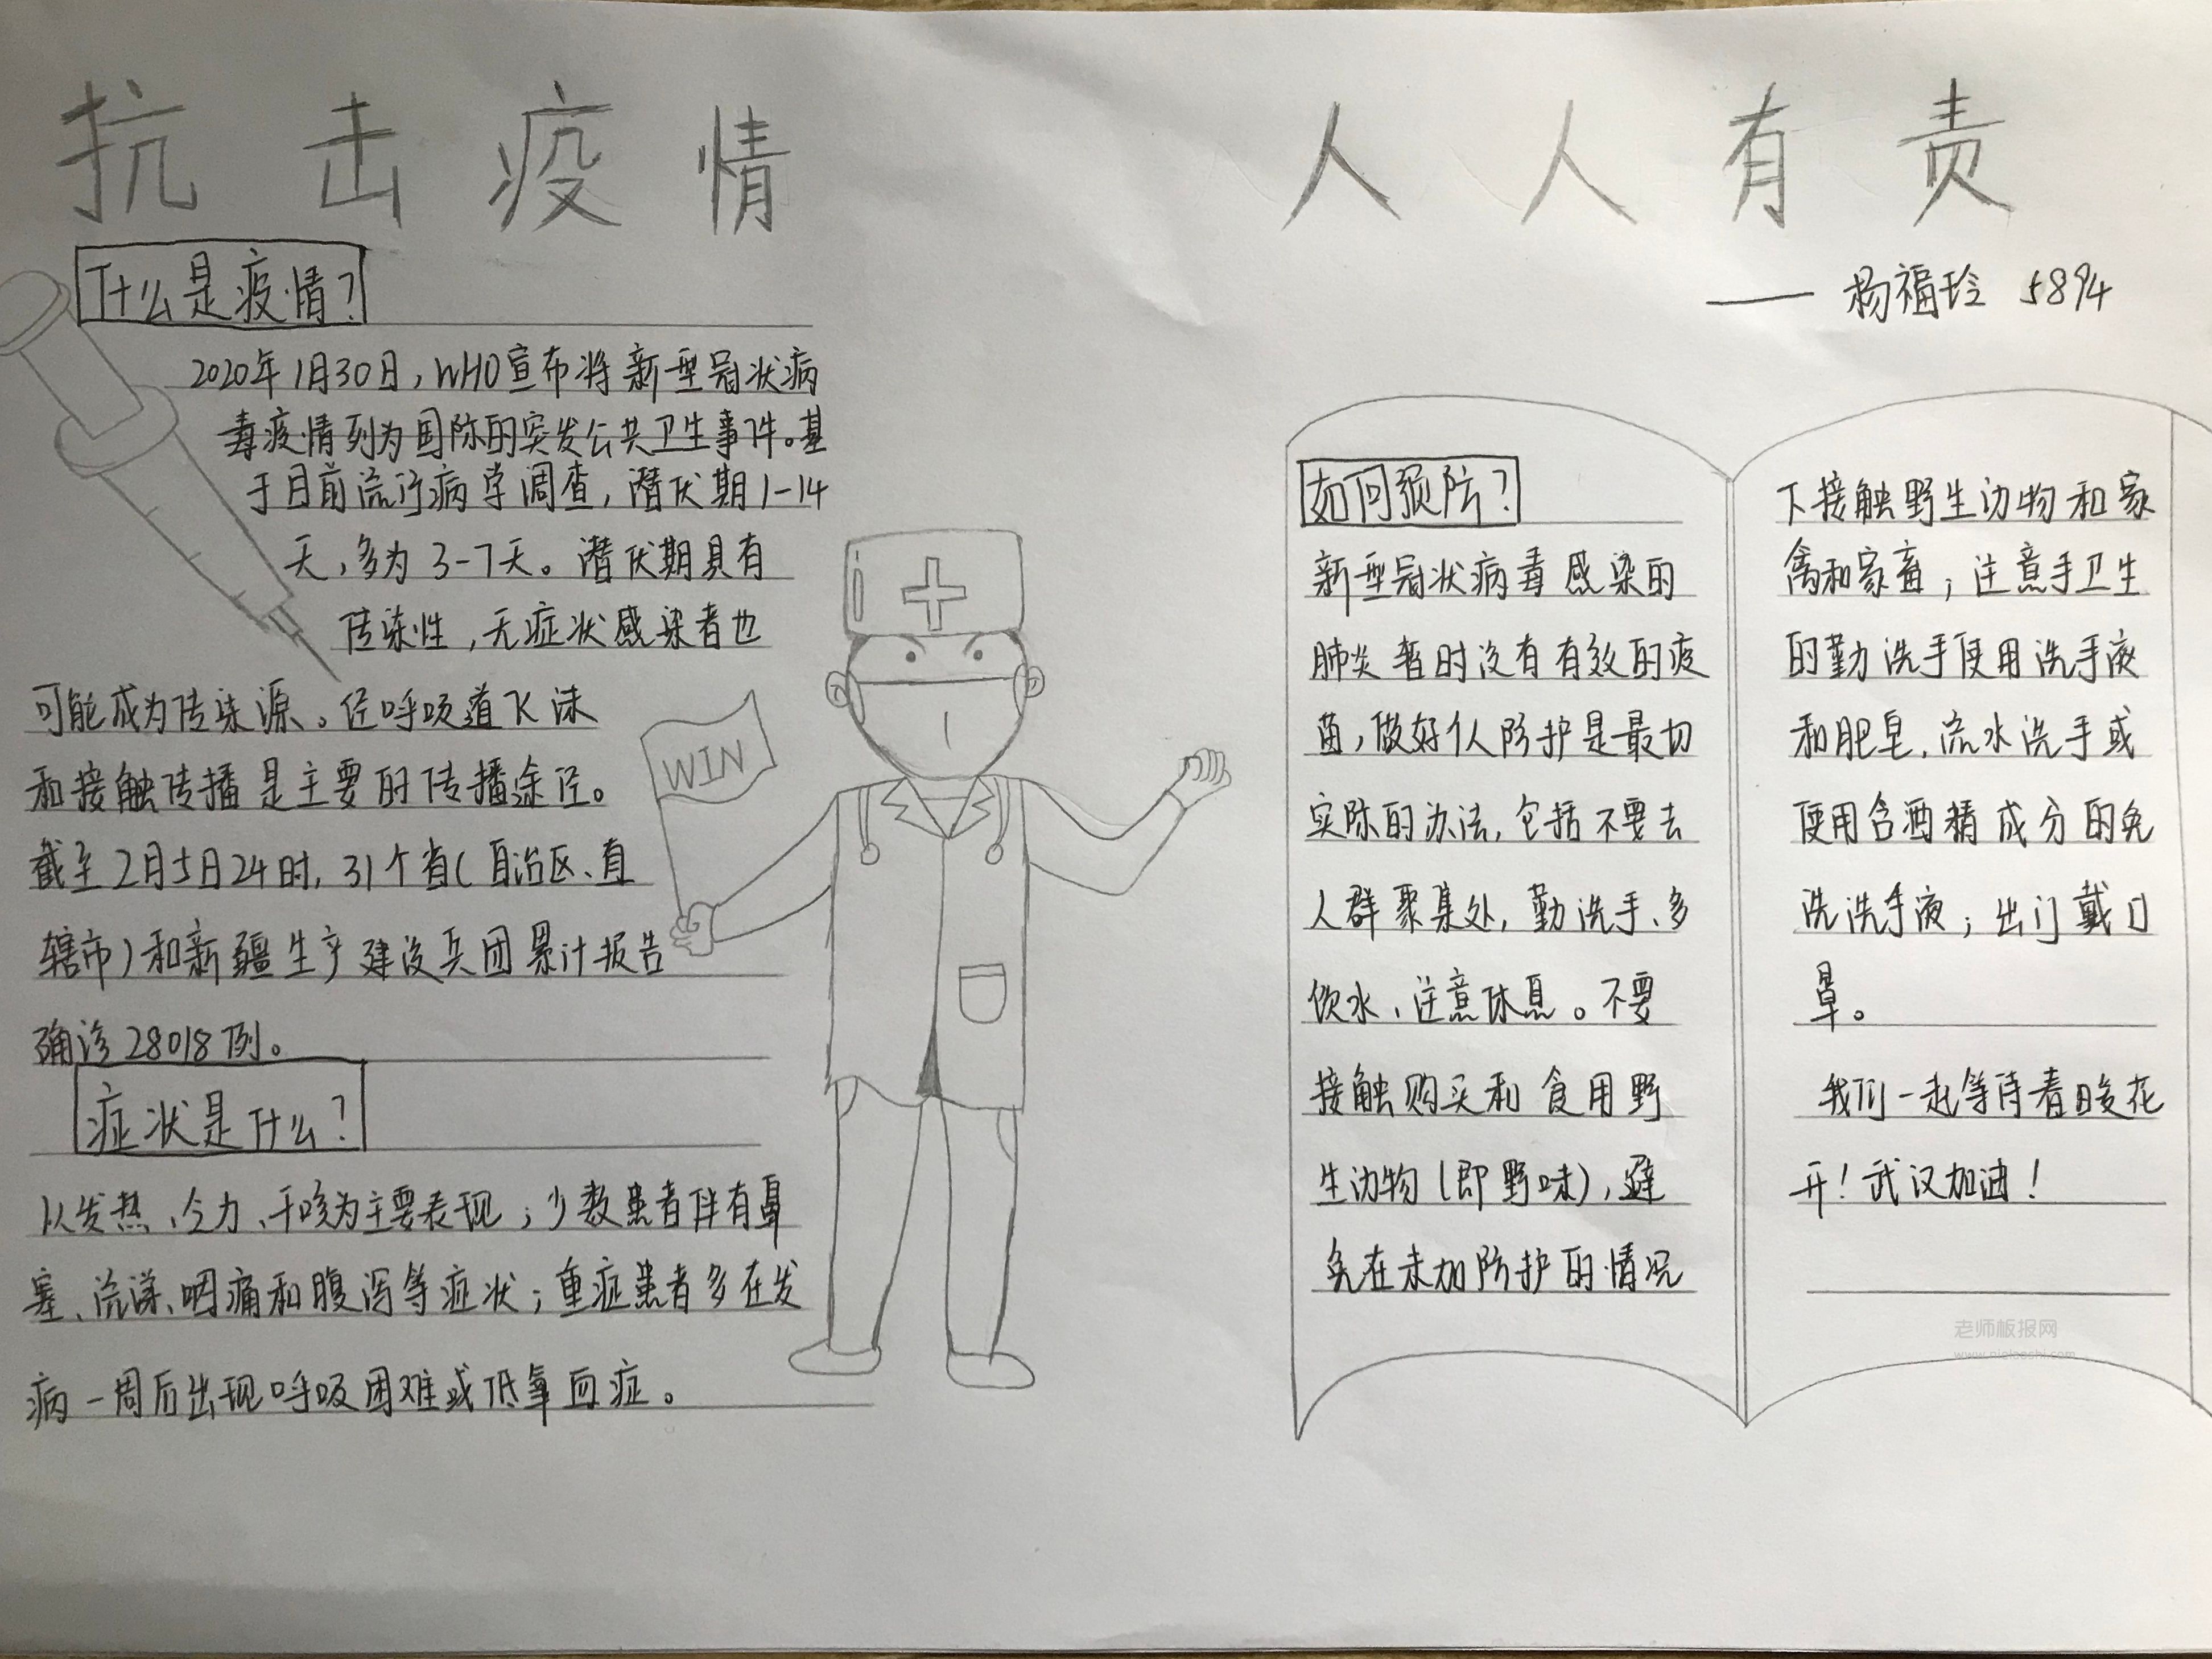 抗击疫情 人人有责
—— 杨福玲 5894
什么是疫情?
2020年1月30日,WHO宣布将新型冠状病
毒疫情列为国际的突发公共卫生事件。基
于目前流行病学调查,潜伏期1-14
天,多为3-7天。潜伏期具有
传染性,无症状感染者也
可能成为传染源。经呼吸道飞沫
和接触传播是主要的传播途径。
截至2月5日24时,31个省(自治区、直
辖市)和新疆生产建设兵团累计报告
确诊28018例。
症状是什么?
以发热、乏力、干咳为主要表现;少数患者伴有鼻
塞、流涕、咽痛和腹泻等症状;重症患者多在发
病一周后出现呼吸困难或低氧血症。
WIN
如何预防?
新型冠状病毒感染的
肺炎暂时没有有效的疫
苗,做好个人防护是最切
实际的办法,包括不要去
人群聚集处,勤洗手、多
饮水、注意休息。不要
接触购买和食用野
生动物(即野味),避
免在未加防护的情况
下接触野生动物和家
禽和家畜;注意手卫生
的勤洗手使用洗手液
和肥皂,流水洗手或
使用含酒精成分的免
洗洗手液;出门戴口
罩。
我们一起等待春暖花
开!武汉加油!
老师板报网